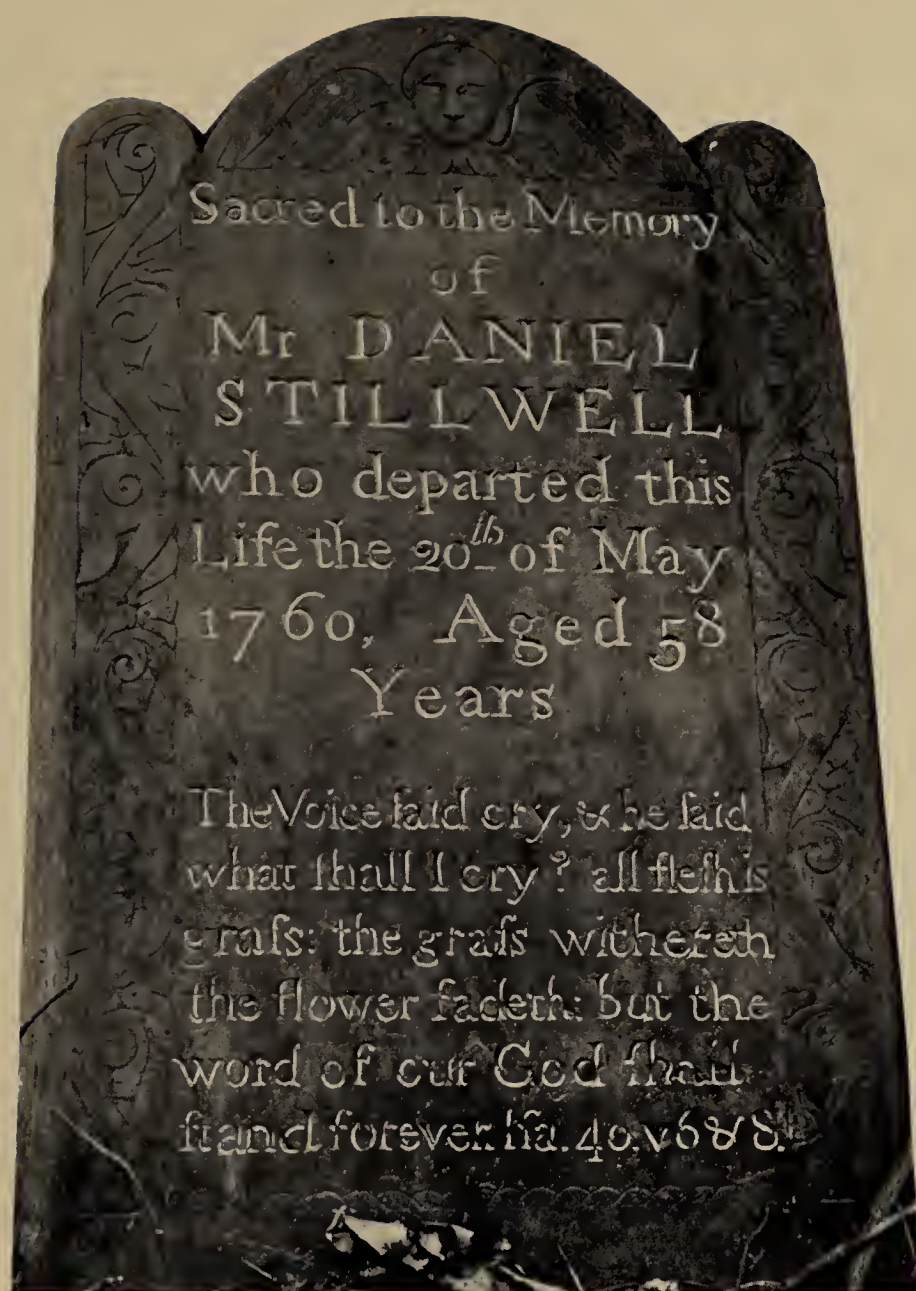 Sacred to the Memory
of
Mr DANIEL
STILLWELL
who departed this
Life the 20th of May
1760, Aged 58
Years
The Voice ſaid cry, & he ſaid
what ſhall I cry? all fleſh is
graſs: the graſs withereth
the flower fadeth: but the
word of our God ſhall
ſtand forever. Iſa. 40. v 6 & 8.